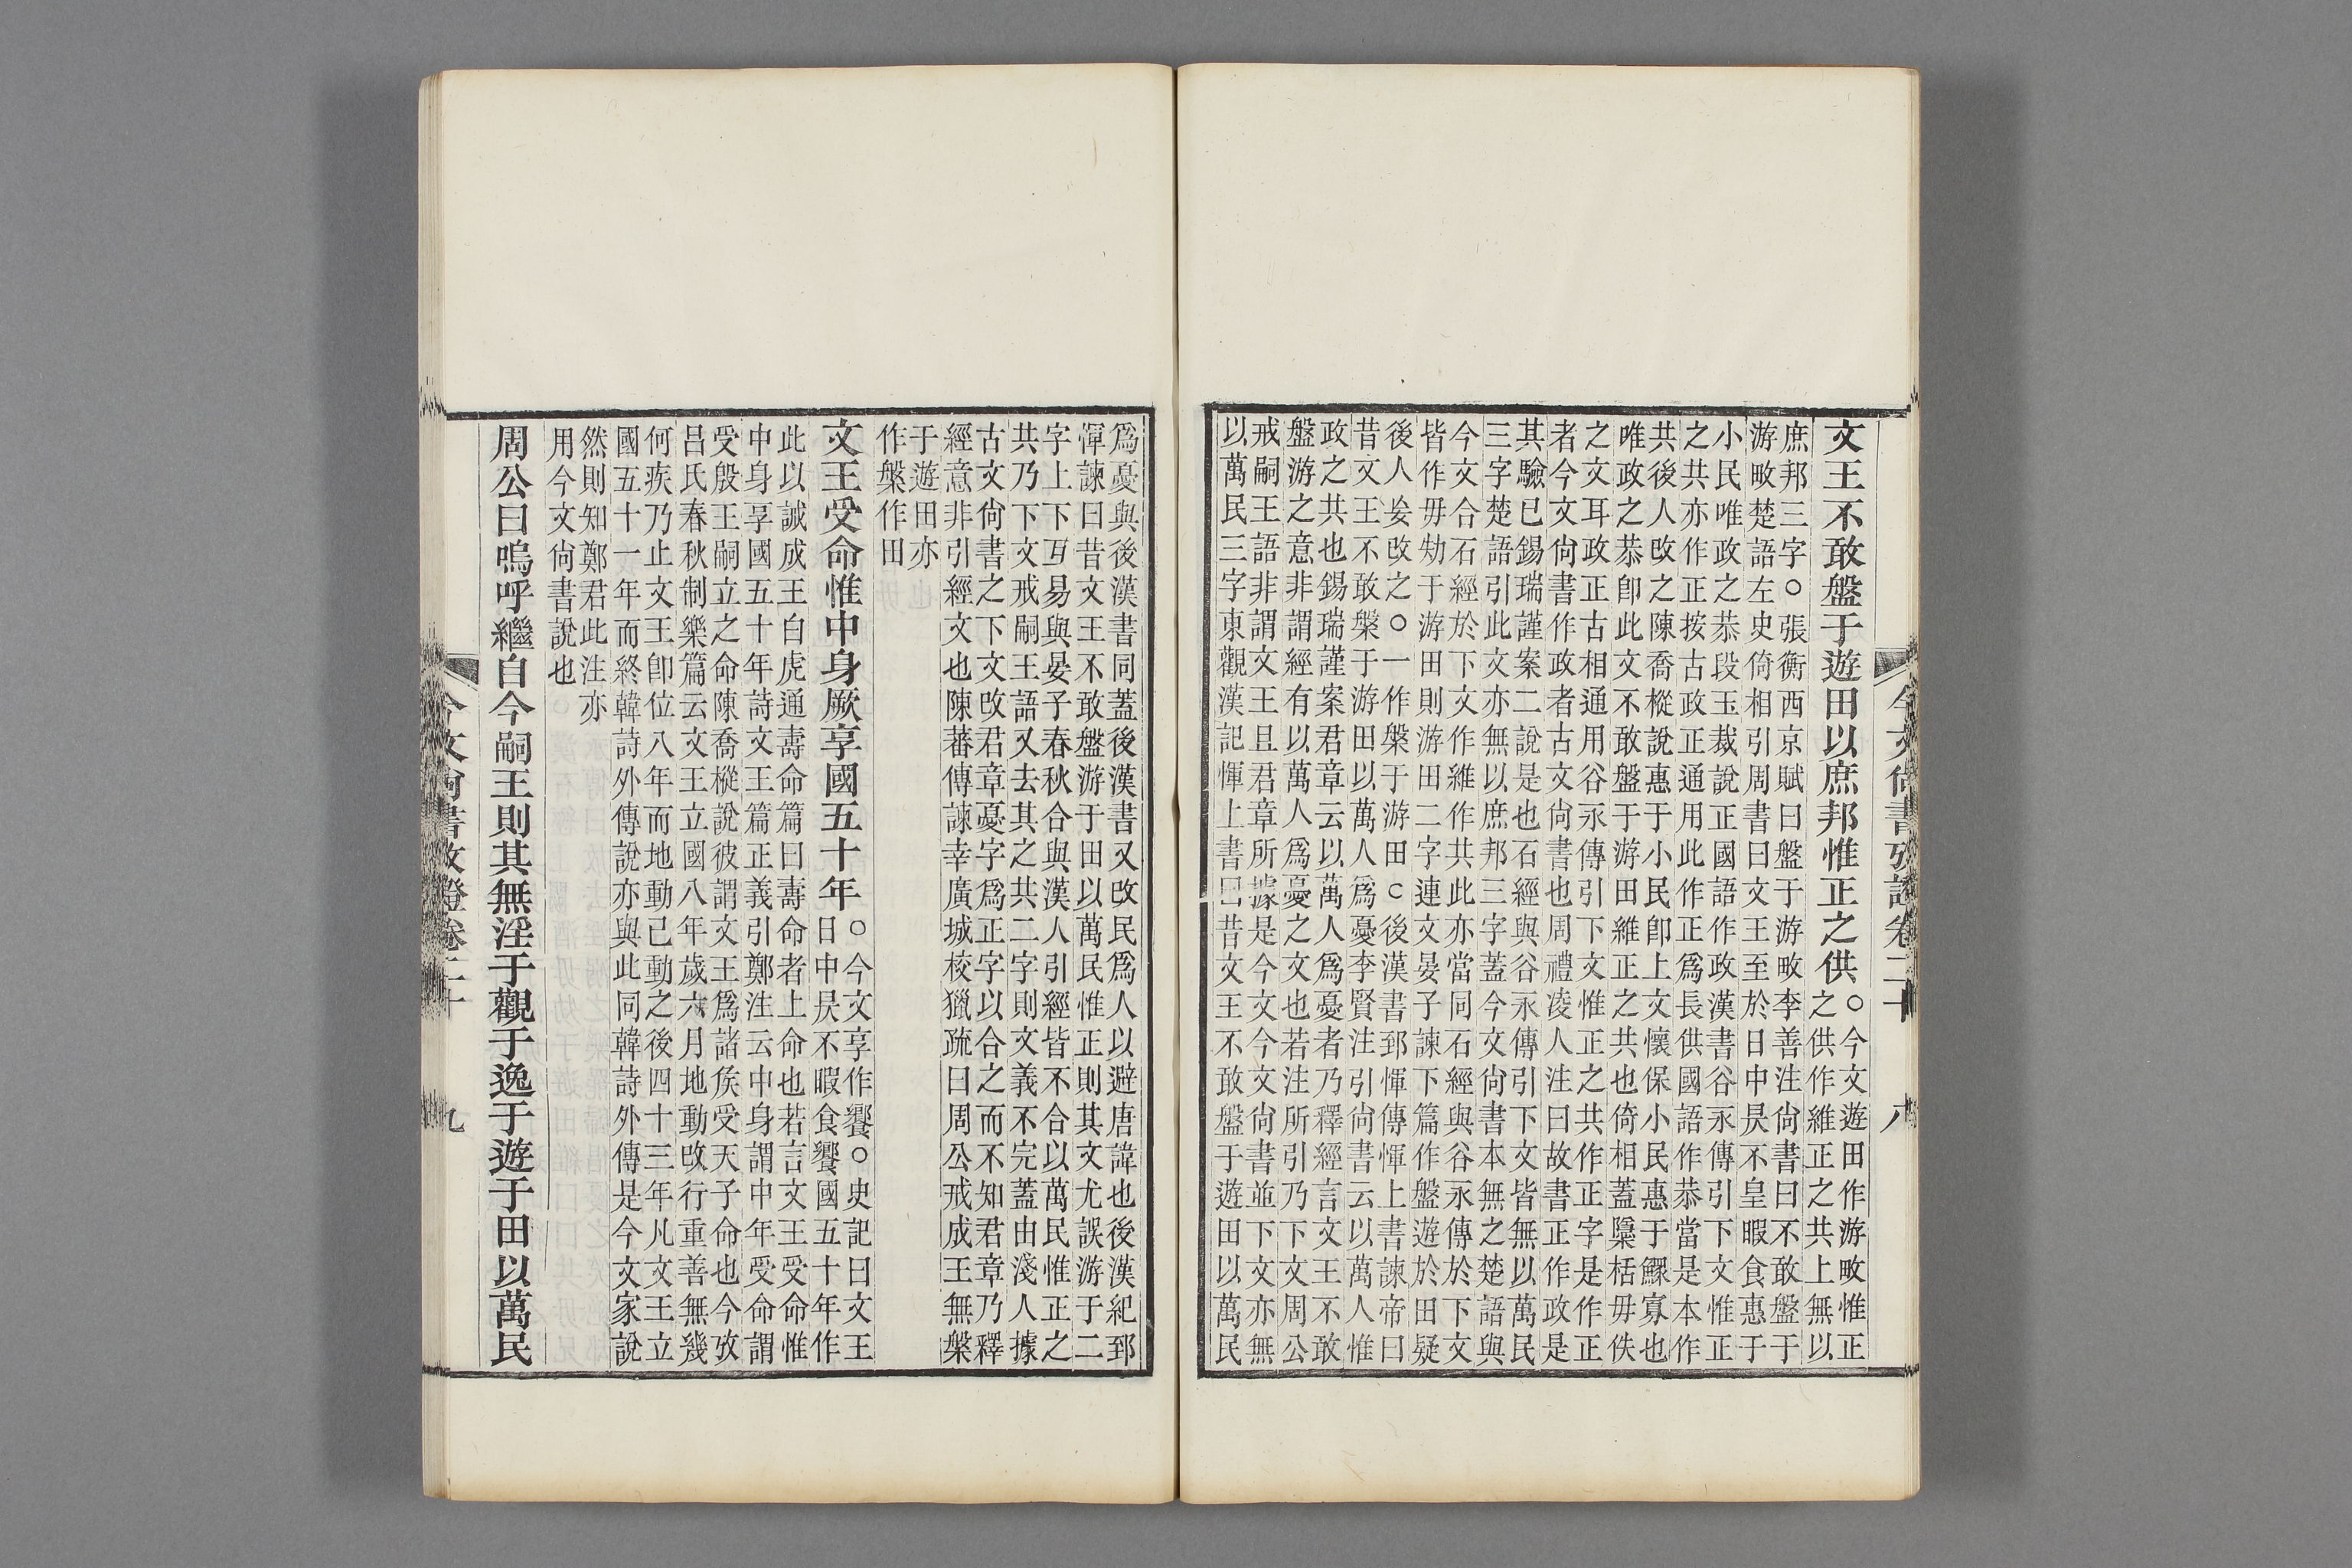 今文尚書攷證卷二十　八
文王不敢盤于遊田以庶邦惟正之供○今文遊田作游畋惟正
之供作維正之共上無以
庶邦三字○張衡西京賦曰盤于游畋李善注尚書曰不敢盤于
游畋楚語左史倚相引周書曰文王至於日中昃不皇暇食惠于
小民唯政之恭段玉裁說正國語作政漢書谷永傳引下文惟正
之共亦作正按古政正通用此作正爲長供國語作恭當是本作
共後人改之陳喬樅說惠于小民卽上文懷保小民惠于鰥寡也
唯政之恭卽此文不敢盤于游田維正之共也倚相蓋檃栝毋佚
之文耳政正古相通用谷永傳引下文惟正之共作正字是作正
者今文尚書作政者古文尚書也周禮凌人注曰故書正作政是
其驗已錫瑞謹案二說是也石經與谷永傳引下文皆無以萬民
三字楚語引此文亦無以庶邦三字蓋今文尚書本無之楚語與
今文合石經於下文作維作共此亦當同石經與谷永傳於下文
皆作毋劮于游田則游田二字連文晏子諫下篇作盤遊於田疑
後人妄改之○一作槃于游田○後漢書郅惲傳惲上書諫帝曰
昔文王不敢槃于游田以萬人爲憂李賢注引尚書云以萬人惟
政之共也錫瑞謹案君章云以萬人爲憂者乃釋經言文王不敢
盤游之意非謂經有以萬人爲憂之文也若注所引乃下文周公
戒嗣王語非謂文王且君章所據是今文今文尚書並下文亦無
以萬民三字東觀漢記惲上書曰昔文王不敢盤于遊田以萬民
爲憂與後漢書同蓋後漢書又改民爲人以避唐諱也後漢紀郅
惲諫曰昔文王不敢盤游于田以萬民惟正則其文尤誤游于二
字上下互易與晏子春秋合與漢人引經皆不合以萬民惟正之
共乃下文戒嗣王語又去其之共二字則文義不完蓋由淺人據
古文尚書之下文改君章憂字爲正字以合之而不知君章乃釋
經意非引經文也陳蕃傳諫幸廣城校獵疏曰周公戒成王無槃
于遊田亦
作槃作田
文王受命惟中身厥享國五十年○今文享作饗○史記曰文王
日中昃不暇食饗國五十年作
此以誡成王白虎通壽命篇曰壽命者上命也若言文王受命惟
中身享國五十年詩文王篇正義引鄭注云中身謂中年受命謂
受殷王嗣立之命陳喬樅說彼謂文王爲諸侯受天子命也今攷
呂氏春秋制樂篇云文王立國八年歲六月地動改行重善無幾
何疾乃止文王卽位八年而地動已動之後四十三年凡文王立
國五十一年而終韓詩外傳說亦與此同韓詩外傳是今文家說
然則知鄭君此注亦
用今文尚書說也
周公曰嗚呼繼自今嗣王則其無淫于觀于逸于遊于田以萬民
今文尚書攷證卷二十　九